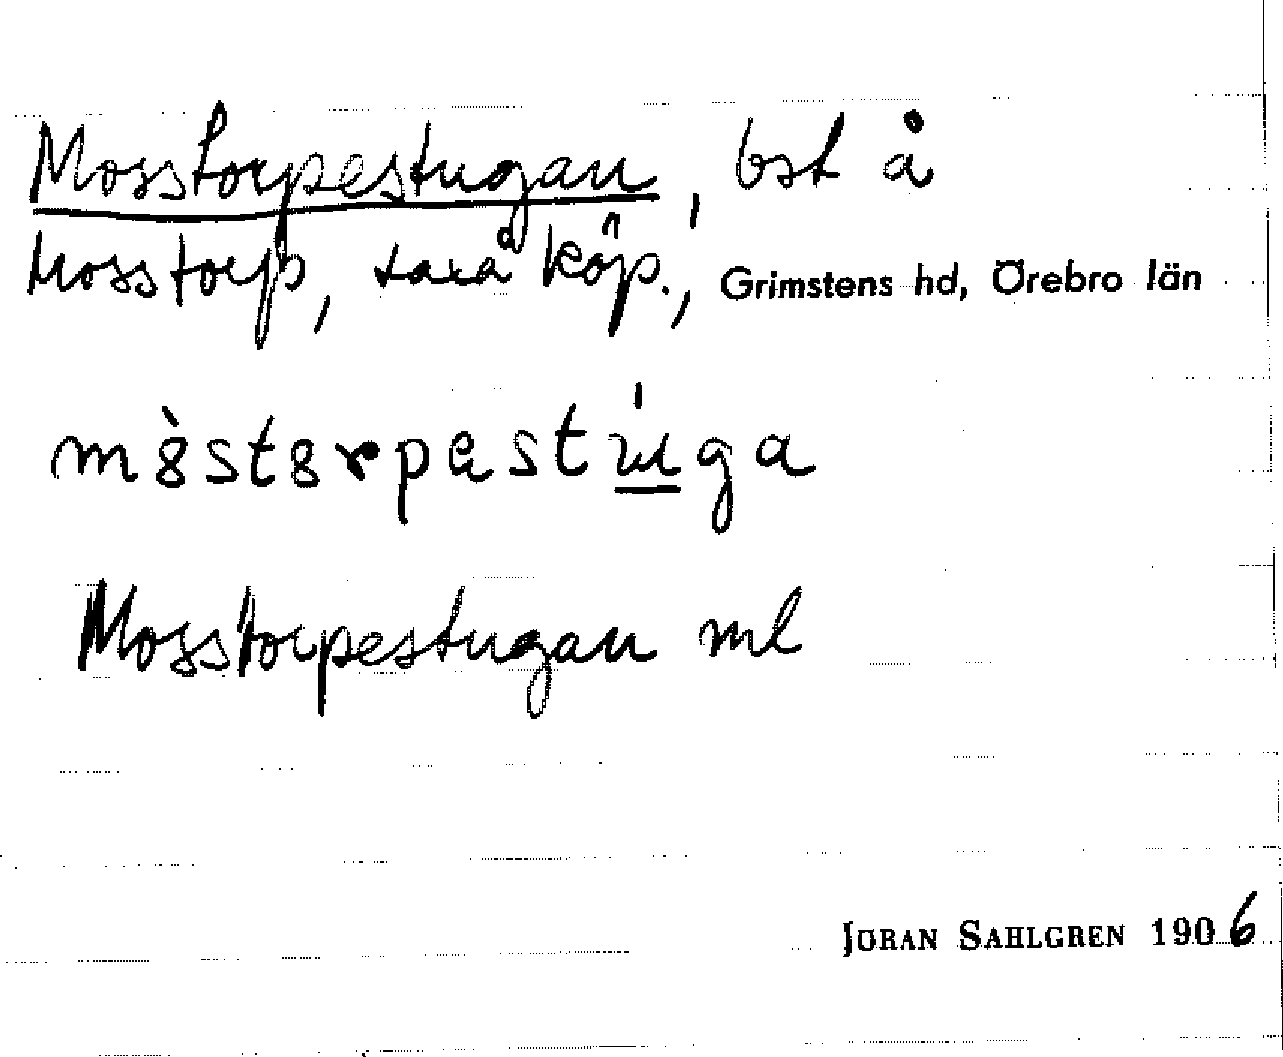 Mosstorpestugan, bst å
Mosstorp, Laxå köp., Grimstens hd, Örebro län
Mosstorpestugan ml
JÖRAN SAHLGREN 1906